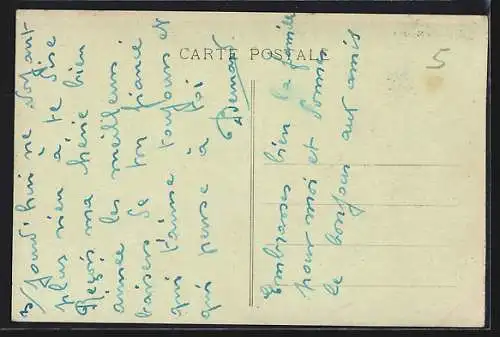 CARTE POSTALE
3/ Aujourd'hui ne voyant
plus rien à te dire
Reçois ma chérie bien
aimée les meilleurs
baisers de ton fiancé
qui t'aime toujours et
qui pense à toi
Embrasses bien la famille
pour moi et donne
le bonjour aux amis
5